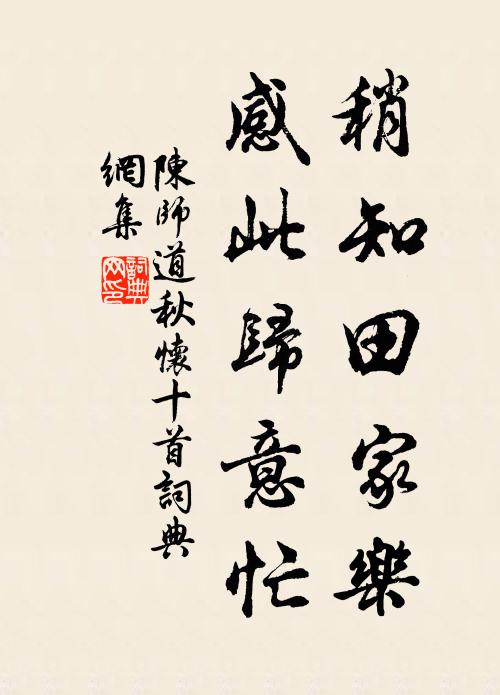 稍知田家樂
感此歸意忙
陳師道秋懷十首詞典
網集
詞典
网印